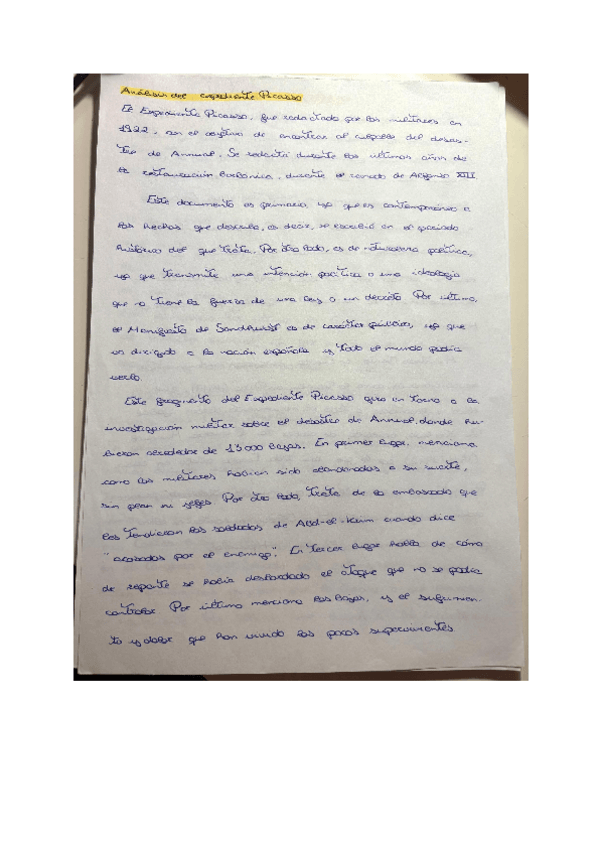 Análisis del expediente Picasso
El Expediente Picasso, fue redactado por los militares en
1922. con el objetivo de encontrar al culpable del desas-
tre de Annual. Se redactó durante los últimos años de
la restauración borbónica, durante el reinado de Alfonso XIII.
Este documento es primario, ya que es contemporáneo a
los hechos que describe, es decir, se escribió en el periodo
histórico del que trata. Por otro lado, es de naturaleza política,
ya que transmite una intención política o una ideología
que no tiene la fuerza de una ley o un decreto. Por último,
el Manifiesto de Sandhurst es de carácter público, ya que
es dirigido a la nación española y todo el mundo podía
verlo.
Este fragmento del Expediente Picasso gira en torno a la
investigación militar sobre el desastre de Annual, donde hu-
bieron alrededor de 13000 bajas. En primer lugar, menciona
como los militares habían sido abandonados a su suerte,
sin plan ni jefes. Por otro lado, trata de la emboscada que
les tendieron los soldados de Abd-el-Krim cuando dice
"acosados por el enemigo". En tercer lugar habla de cómo
de repente se había desbordado el ataque que no se podía
controlar. Por último menciona las bajas, y el sufrimien-
to y dolor que han vivido los pocos supervivientes